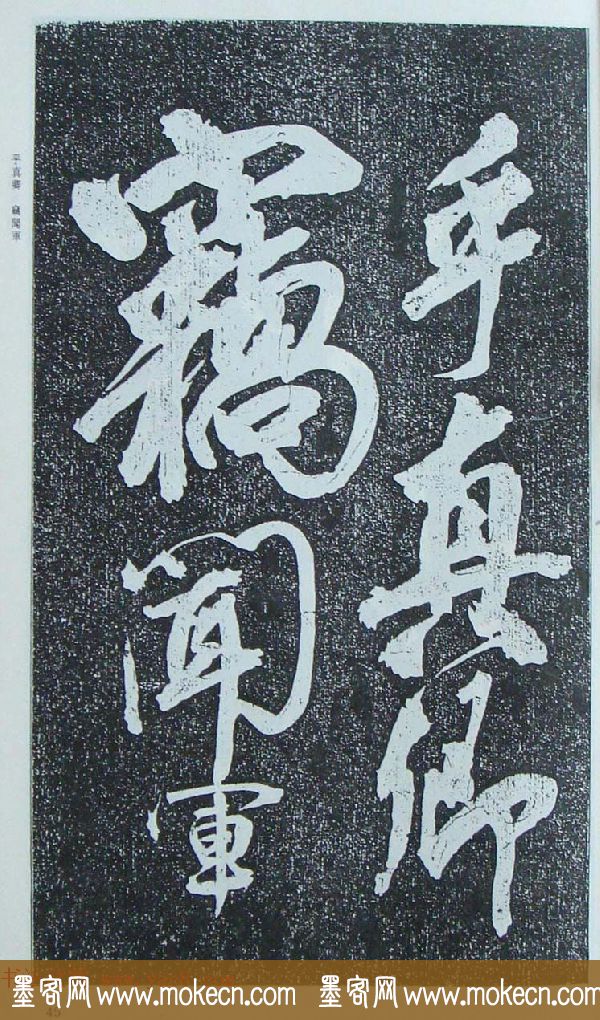 乎真卿
竊聞軍
乎真卿 竊聞軍
45
墨客网 www.mokecn.com 墨客网 www.mokecn.com